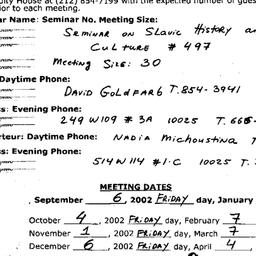 ulty House at (212) 854-7199 with the expected number of gues
ior to each meeting.
ar Name: Seminar No. Meeting Size:
SEMINAR ON SLAVIC HISTORY an
CULTURE # 497
MEETING SIZE: 30
Daytime Phone:
DAVID GOLDFARB T. 854-3941
s: Evening Phone:
249 W109 # 3A 10025 T. 666-
rteur: Daytime Phone: NADIA MICHOUSTINA T
s: Evening Phone:
514 W 114 #1-C 10025 T.
MEETING DATES
, September 6, 2002 FRIDAY day, January
October 4, 2002 FRIDAY day, February 7
November 1, 2002 FRIDAY day, March 7
December 6, 2002 FRIDAY day, April 4